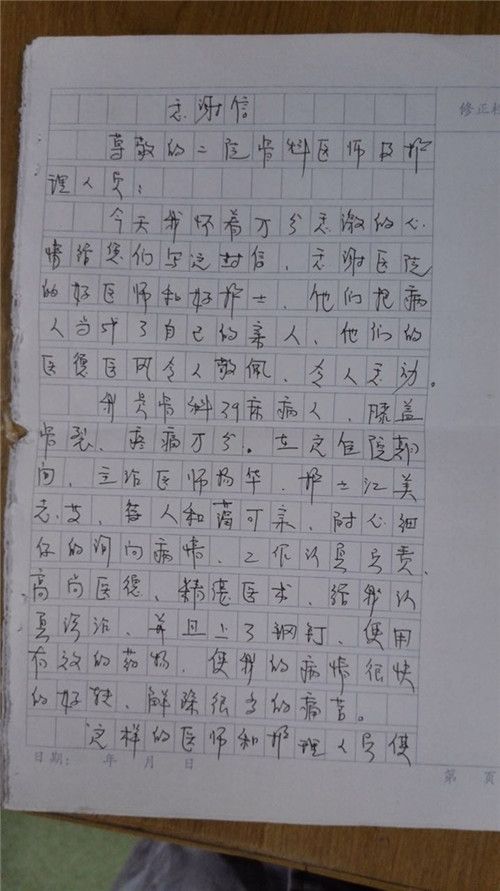 感谢信
修正栏
尊敬的二院骨科医师及护
理人员:
今天我怀着万分感激的心
情给您们写这封信、感谢医院
的好医师和好护士、他们把病
人当成了自己的亲人、他们的
医德医风令人敬佩、令人感动。
我是骨科39床病人、膝盖
骨裂、疼痛万分。在这住院期
间、主治医师杨华、护士江美
志、艾、每人和蔼可亲、耐心细
仔的询问病情、工作认真负责、
高尚医德、精湛医术、给我认
真诊治、并且上了钢钉、使用
有效的药物、使我的病情很快
的好转、解除很多的痛苦。
这样的医师和护理人员使
日期: 年 月 日
第 页